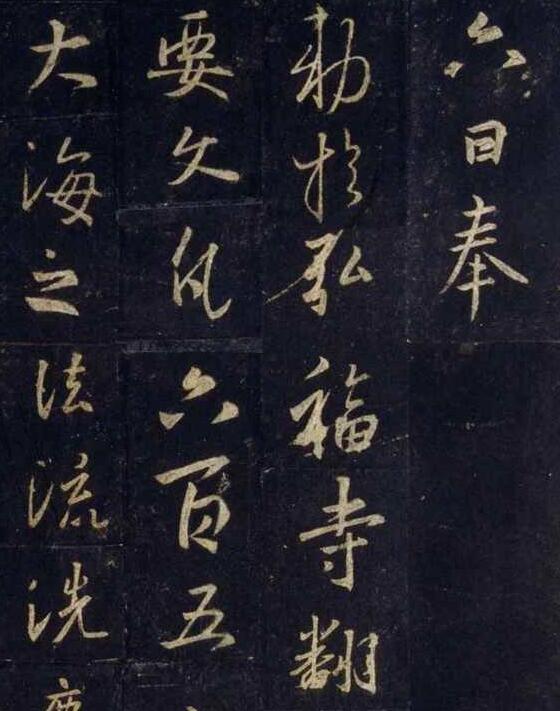 六日奉
勅於弘福寺翻
要文凡六百五
大海之法流洗